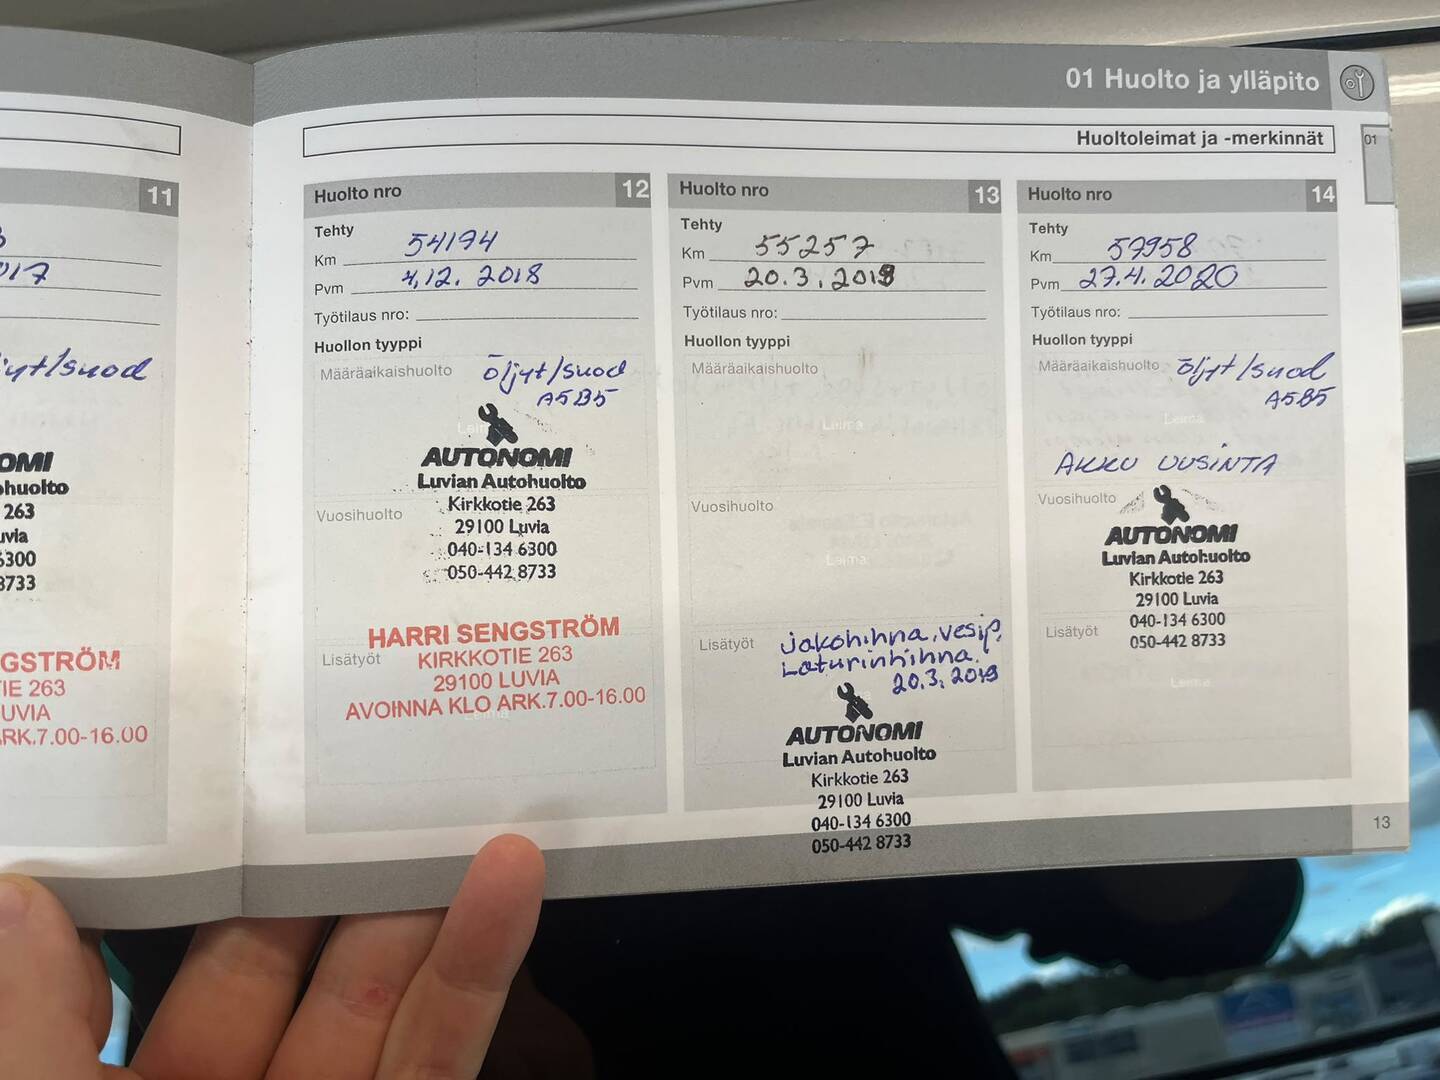 01 Huolto ja ylläpito
Huoltoleimat ja -merkinnät
01
11
017
suod
OMI
ohuolto
263
6300
8733
GSTRÖM
263
ARK.7.00-16.00
Huolto nro 12
Tehty
Km 54194
Pvm 4.12. 2018
Työtilaus nro:
Huollon tyyppi
Määräaikaishuolto öljyt/suod
A5B5
AUTONOMI
Luvian Autohuolto
Kirkkotie 263
Vuosihuolto
29100 Luvia
040-134 6300
050-442 8733
HARRI SENGSTRÖM
Lisätyöt KIRKKOTIE 263
29100 LUVIA
AVOINNA KLO ARK.7.00-16.00
Leima
Huolto nro 13
Tehty
Km 55257
Pvm 20.3.2019
Työtilaus nro:
Huollon tyyppi
Määräaikaishuolto
Leima
Vuosihuolto
Leima
Lisätyöt jakohihna, vesip,
Laturinhihna.
20.3.2019
AUTONOMI
Luvian Autohuolto
Kirkkotie 263
29100 Luvia
040-134 6300
050-442 8733
Huolto nro 14
Tehty
Km 57958
Pvm 27.4.2020
Työtilaus nro:
Huollon tyyppi
Määräaikaishuolto öljyt/suod
A5B5
Leima
AKKU UUSINTA
Vuosihuolto
AUTONOMI
Luvian Autohuolto
Kirkkotie 263
29100 Luvia
Lisätyöt 040-134 6300
050-442 8733
Leima
13